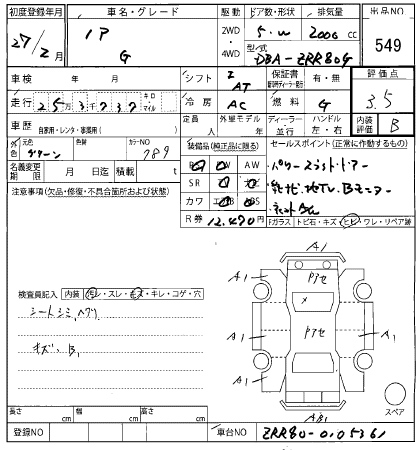 初度登録年月 車名・グレード 駆動 ドア数・形状 排気量 出品NO
27/2月 G 2WD・4WD 5・W 2000 cc 549
型式 DBA-ZRR80G
車検 年 月 シフト AT 保証書 有・無 評価点
走行 25万3737 キロ・マイル 冷房 AC 燃料 G 3.5
車歴 自家用・レンタ・事業用( ) 定員 人 外車モデル 年 ディーラー・並行 ハンドル 左・右 内装評価 B
色 元色 グリーン 色替 カラーNO 789
装備品(純正品に限る) セールスポイント(正常に作動するもの)
名義変更期限 月 日迄 積載 t
SR ナビ
カワ
R券 12,470円
パワースライドドアー
注意事項(欠品・修復・不具合箇所および状態)
ガラス トビ石・キズ・ヒビ・ワレ・リペア跡
検査員記入 内装 汚レ・スレ・キズ・キレ・コゲ・穴
シートシミ、ヘタリ
キズ、B1
A1
A1 Pアセ A1
×
A1 Pアセ A1
A1 A1
AB1
スペア
長さ cm 幅 cm 高さ cm
登録NO 車台NO ZRR80-0105361